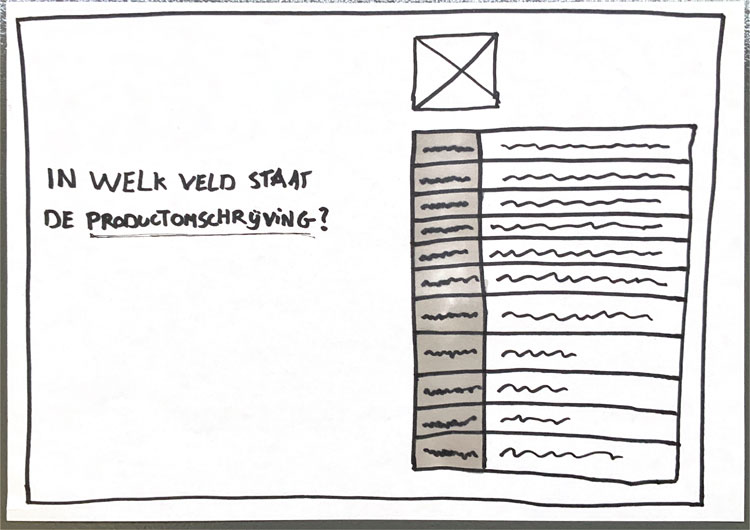 IN WELK VELD STAAT
DE PRODUCTOMSCHRIJVING?